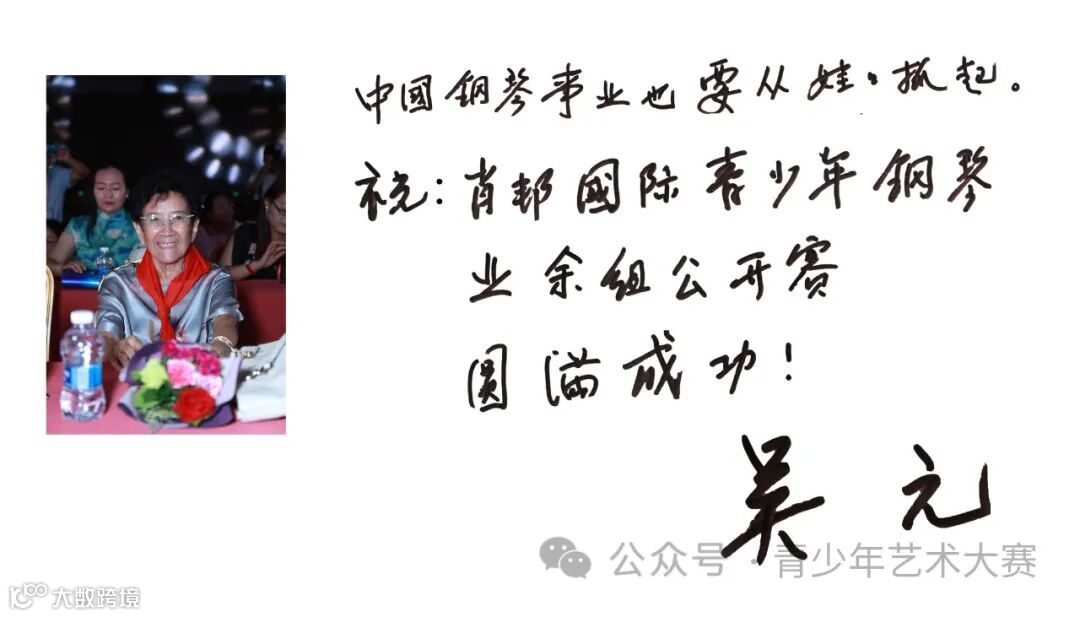 中國钢琴事业也要从娃々抓起。
祝:肖邦國际青少年钢琴
业余组公开赛
圆满成功!
吴元
公众号·青少年艺术大赛
100 大数跨境